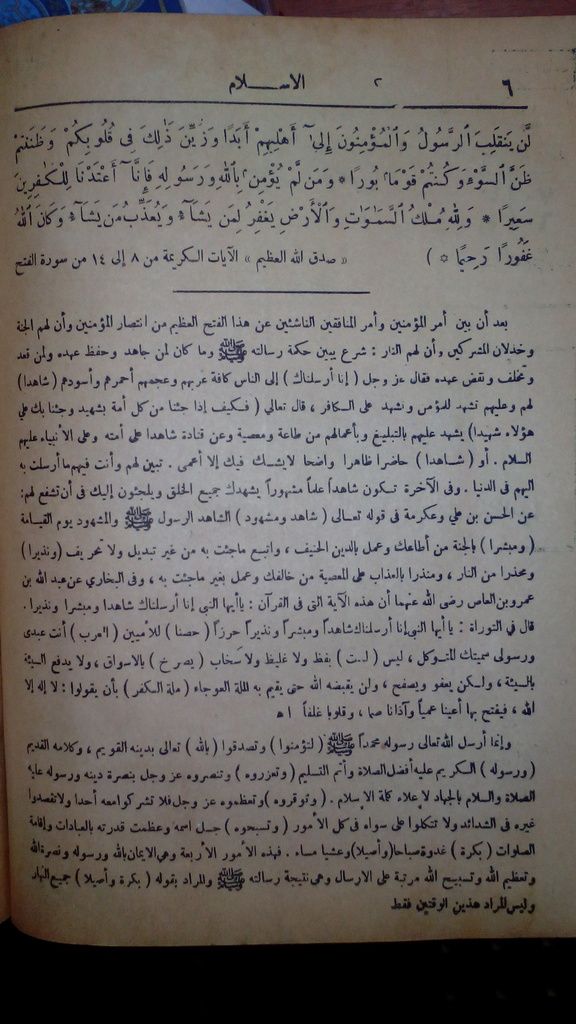 ٦ ٢ الاســـلام
لَّن يَنقَلِبَ ٱلرَّسُولُ وَٱلْمُؤْمِنُونَ إِلَىٰٓ أَهْلِيهِمْ أَبَدًا وَزُيِّنَ ذَٰلِكَ فِى قُلُوبِكُمْ وَظَنَنتُمْ
ظَنَّ ٱلسَّوْءِ وَكُنتُمْ قَوْمًا بُورًا * وَمَن لَّمْ يُؤْمِنۢ بِٱللَّهِ وَرَسُولِهِ فَإِنَّآ أَعْتَدْنَا لِلْكَٰفِرِينَ
سَعِيرًا * وَلِلَّهِ مُلْكُ ٱلسَّمَٰوَٰتِ وَٱلْأَرْضِ يَغْفِرُ لِمَن يَشَآءُ وَيُعَذِّبُ مَن يَشَآءُ وَكَانَ ٱللَّهُ
غَفُورًا رَحِيمًا * ) « صدق الله العظيم » الآيات الكريمة من ٨ إلى ١٤ من سورة الفتح
بعد أن بين أمر المؤمنين وأمر المنافقين الناشئين عن هذا الفتح العظيم من انتصار المؤمنين وأن لهم الجنة
وخذلان المشركين وأن لهم النار : شرع يبين حكمة رسالته ﷺ وما كان لمن جاهد وحفظ عهده ولمن قعد
وتخلف ونقض عهده فقال عز وجل ( إنا أرسلناك ) إلى الناس كافة عربهم وعجمهم أحمرهم وأسودهم ( شاهدا )
لهم وعليهم تشهد للمؤمن وتشهد على الكافر ، قال تعالى ( فكيف إذا جئنا من كل أمة بشهيد وجئنا بك على
هؤلاء شهيدا ) يشهد عليهم بالتبليغ وبأعمالهم من طاعة ومعصية وعن قتادة شاهدا على أمته وعلى الأنبياء عليهم
السلام . أو ( شـاهدا ) حاضرا ظاهرا واضحا لايشك فيك إلا أعمى . تبين لهم وأنت فيهم ما أرسلت به
اليهم فى الدنيا . وفى الآخرة تكون شاهداً علماً مشهوراً يشهدك جميع الخلق ويلجئون إليك فى أن تشفع لهم :
عن الحسن بن على وعكرمة فى قوله تعـالى ( شاهد ومشهود ) الشاهد الرسول ﷺ والمشهود يوم القيـامة
( ومبشرا ) بالجنة من أطاعك وعمل بالدين الحنيف ، واتبع ماجئت به من غير تبديل ولا تحريف ( ونذيرا )
ومحذرا من النار ، ومنذرا بالعذاب على المعصية من خالفك وعمل بغير ماجئت به ، وفى البخاري عن عبد الله بن
عمرو بن العاص رضى الله عنهما أن هذه الآية التى فى القرآن : ياأيها النبى إنا أرسلناك شاهدا ومبشرا ونذيرا .
قال فى التوراة : يا أيها النبى إنا أرسلناك شاهداً ومبشراً ونذيراً حرزاً ( حصنا ) للأميين ( العرب ) أنت عبدى
ورسولى سميتك المتـوكل ، ليس ( لـست ) بفظ ولا غليظ ولا سخاب ( يصرخ ) بالاسواق ، ولا يدفع السيئة
بالسيئة ، ولـكن يعفو ويصفح ، ولن يقبضه الله حتى يقيم به الملة العوجاء ( ملة الكفر ) بأن يقولوا : لا إله إلا
الله ، فيفتح بها أعينا عمياً وآذانا صما ، وقلوبا غلفاً ا ه
وإنما أرسل الله تعالى رسوله محمداً ﷺ ( لتؤمنوا ) وتصدقوا ( بالله ) تعالى بدينه القويم ، وكلامه القديم
( ورسوله ) الكريم عليه أفضل الصلاة وأتم التسليم ( وتعزروه ) وتنصروه عز وجل بنصرة دينه ورسوله عليه
الصلاة والسلام بالجهاد لإعلاء كلمة الإسلام . ( وتوقروه ) وتعظموه عز وجل فلا تشركوا معه أحدا ولا تقصدوا
غيره فى الشدائد ولا تتكلوا على سواه فى كل الأمور ( وتسبحوه ) جـل اسمه وعظمت قدرته بالعبادات وإقامة
الصلوات ( بكرة ) غدوة صباحا ( وأصيلا ) وعشيا مساء . فهذه الأمور الأربعة وهى الايمان بالله ورسوله ونصرة الله
وتعظيم الله وتسبيح الله مرتبة على الارسال وهى نتيجة رسالته ﷺ والمراد بقوله ( بكرة وأصيلا ) جميع النهار
وليس المراد هذين الوقتين فقط